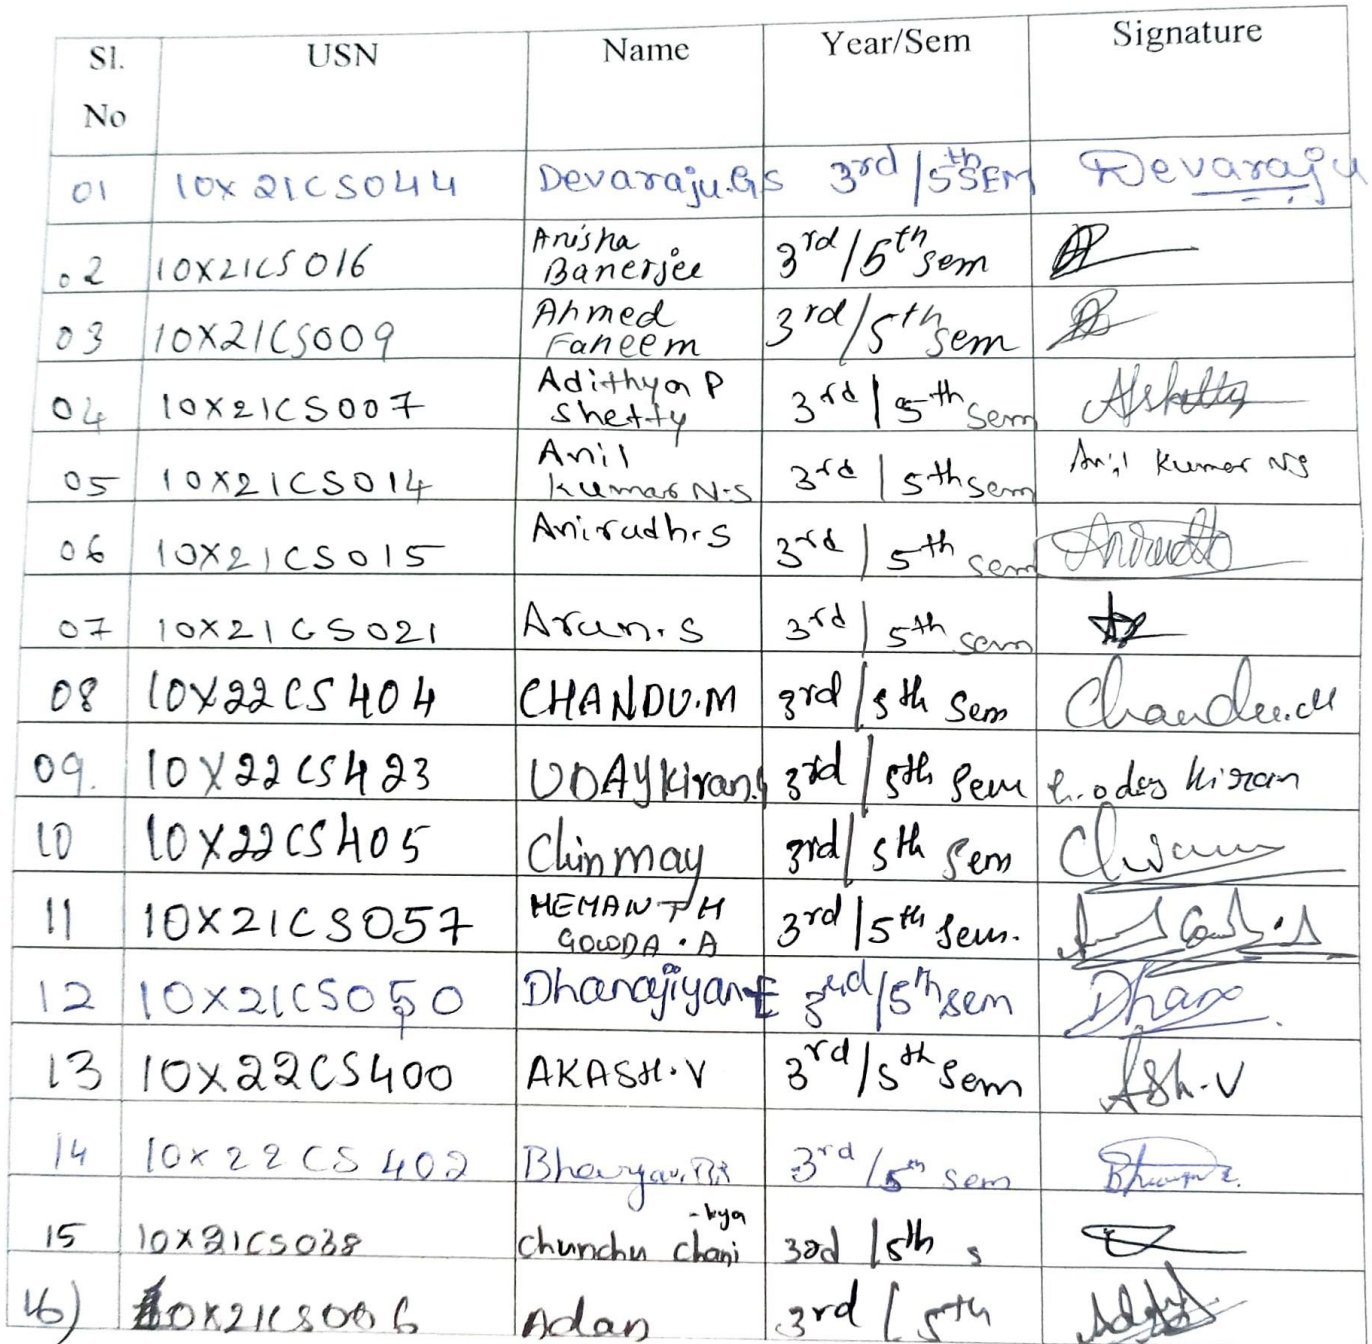 Sl. No USN Name Year/Sem Signature
01 10X21CS044 Devaraju.GS 3rd/5th SEM Devaraju
02 10X21CS016 Anisha Banerjee 3rd/5th sem
03 10X21CS009 Ahmed Faheem 3rd/5th sem
04 10X21CS007 Adithya P Shetty 3rd/5th sem AShetty
05 10X21CS014 Anil Kumar N.S 3rd/5th sem Anil Kumar NS
06 10X21CS015 Anirudh.S 3rd/5th sem Anirudh
07 10X21CS021 Arun.S 3rd/5th sem
08 10X22CS404 CHANDU.M 3rd/5th Sem Chandu.M
09. 10X22CS423 UDAYkiran. 3rd/5th Sem Kiran
10 10X22CS405 Chinmay 3rd/5th Sem
11 10X21CS057 HEMANTH GOWDA.A 3rd/5th Sem.
12 10X21CS050 Dhanajiyan E 3rd/5th sem Dhano
13 10X22CS400 AKASH.V 3rd/5th Sem ASh.V
14 10X22CS402 3rd/5th sem
15 10X21CS038 Chunchu chani-kya 3rd/5th s
16) 10X21CS006 Adan 3rd/5th